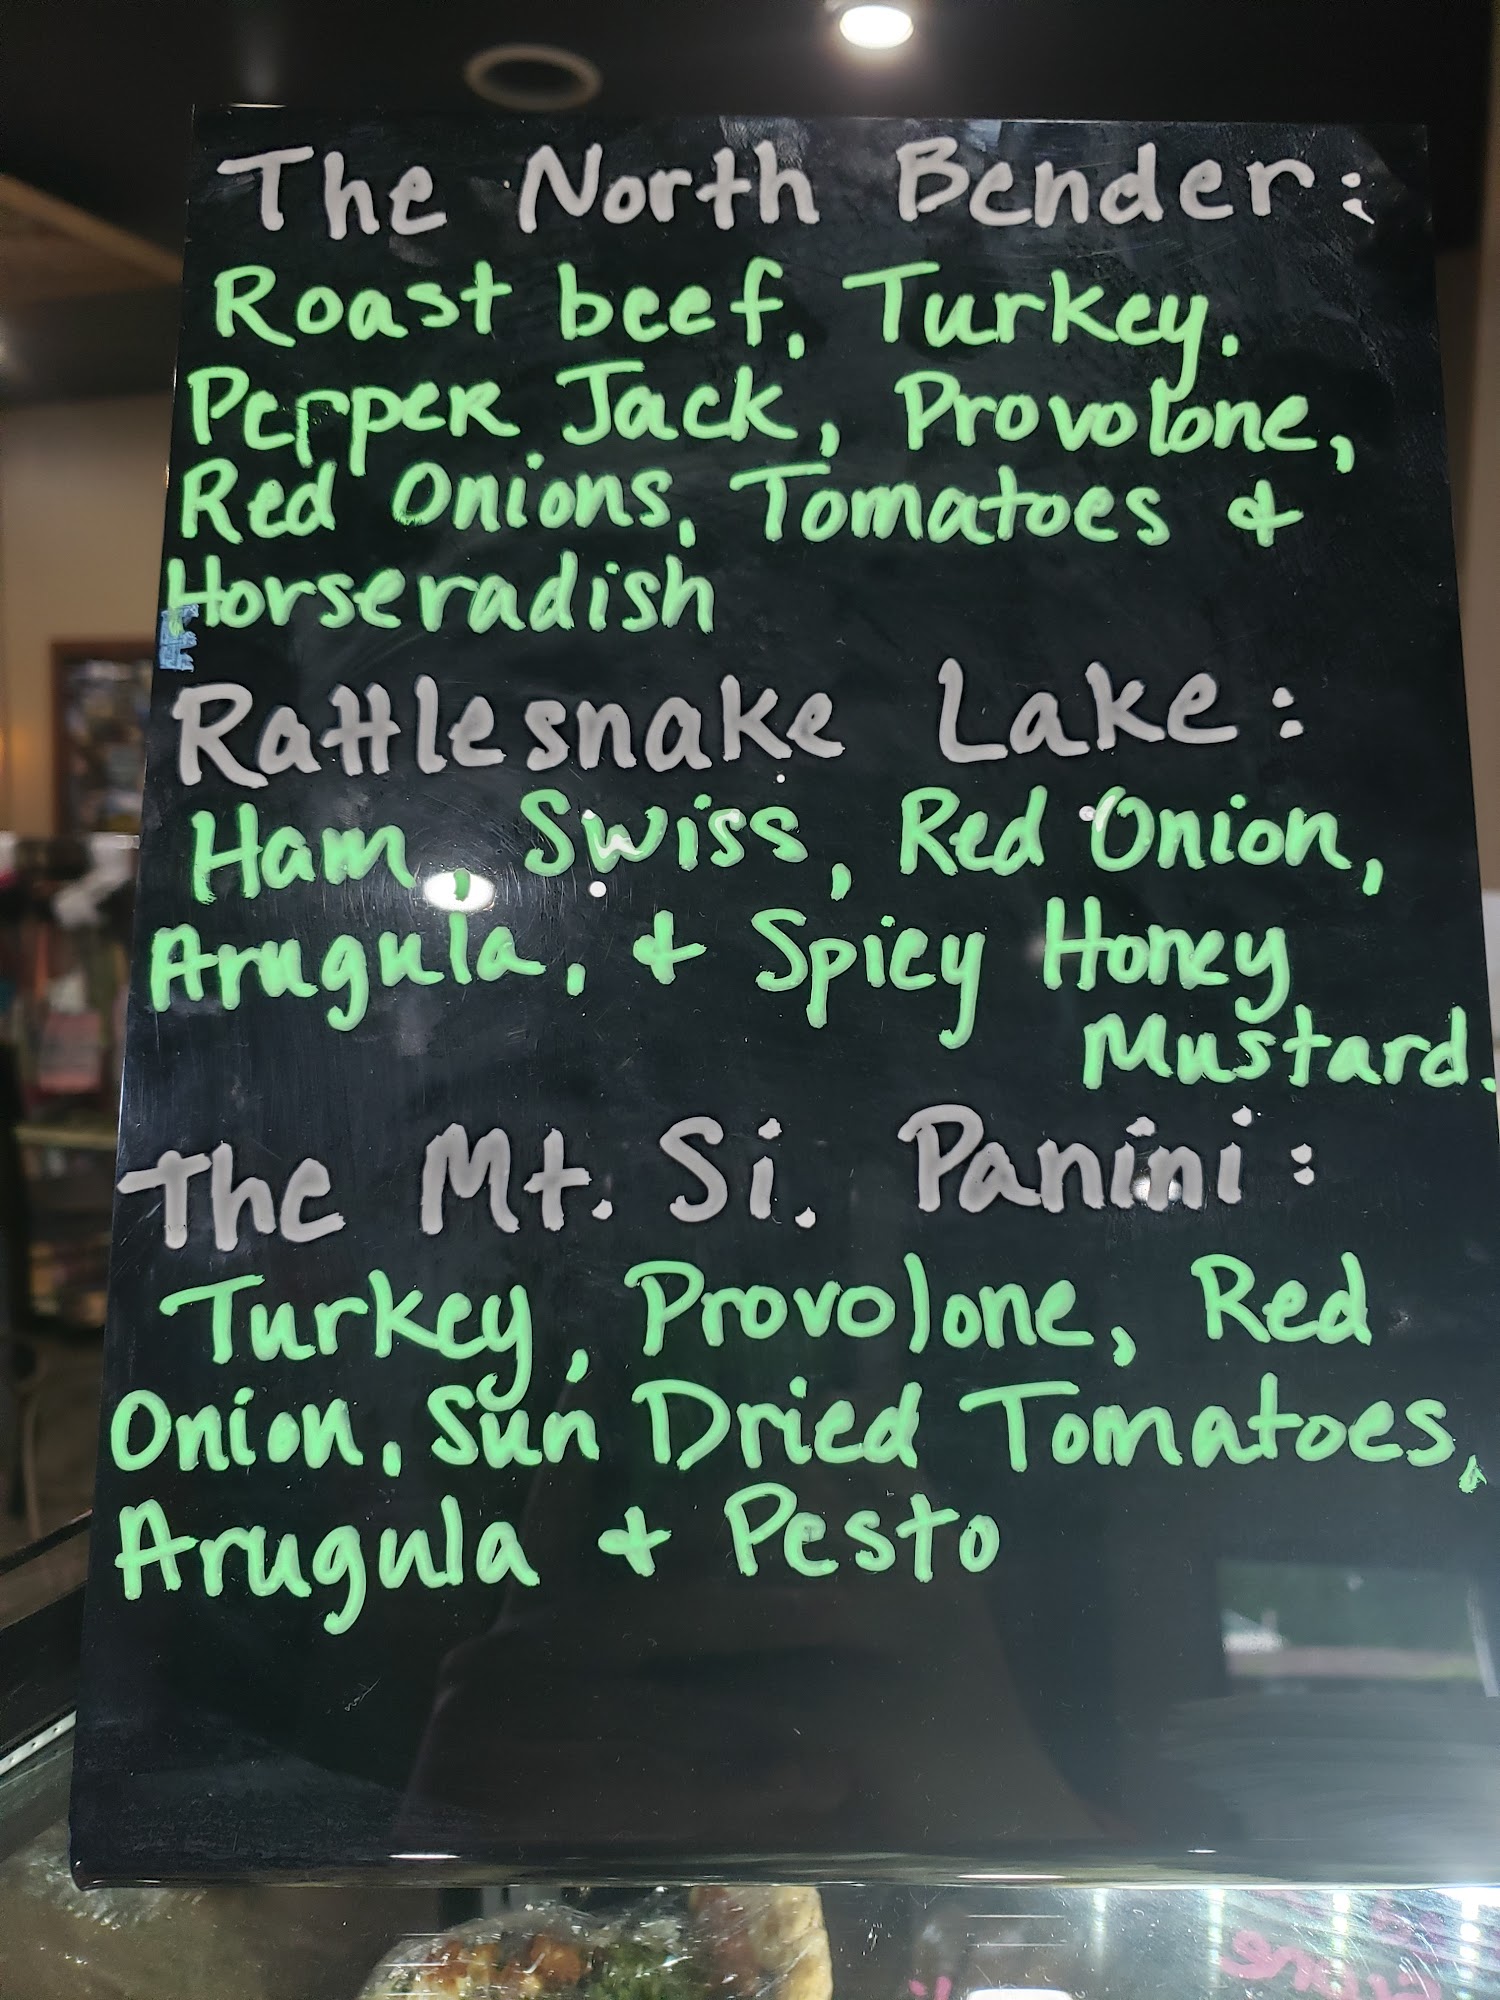 The North Bender:
Roast beef, Turkey.
Pepper Jack, Provolone,
Red Onions, Tomatoes &
Horseradish
Rattlesnake Lake:
Ham, Swiss, Red Onion,
Arugula, & Spicy Honey
Mustard.
The Mt. Si. Panini:
Turkey, Provolone, Red
Onion, Sun Dried Tomatoes,
Arugula & Pesto